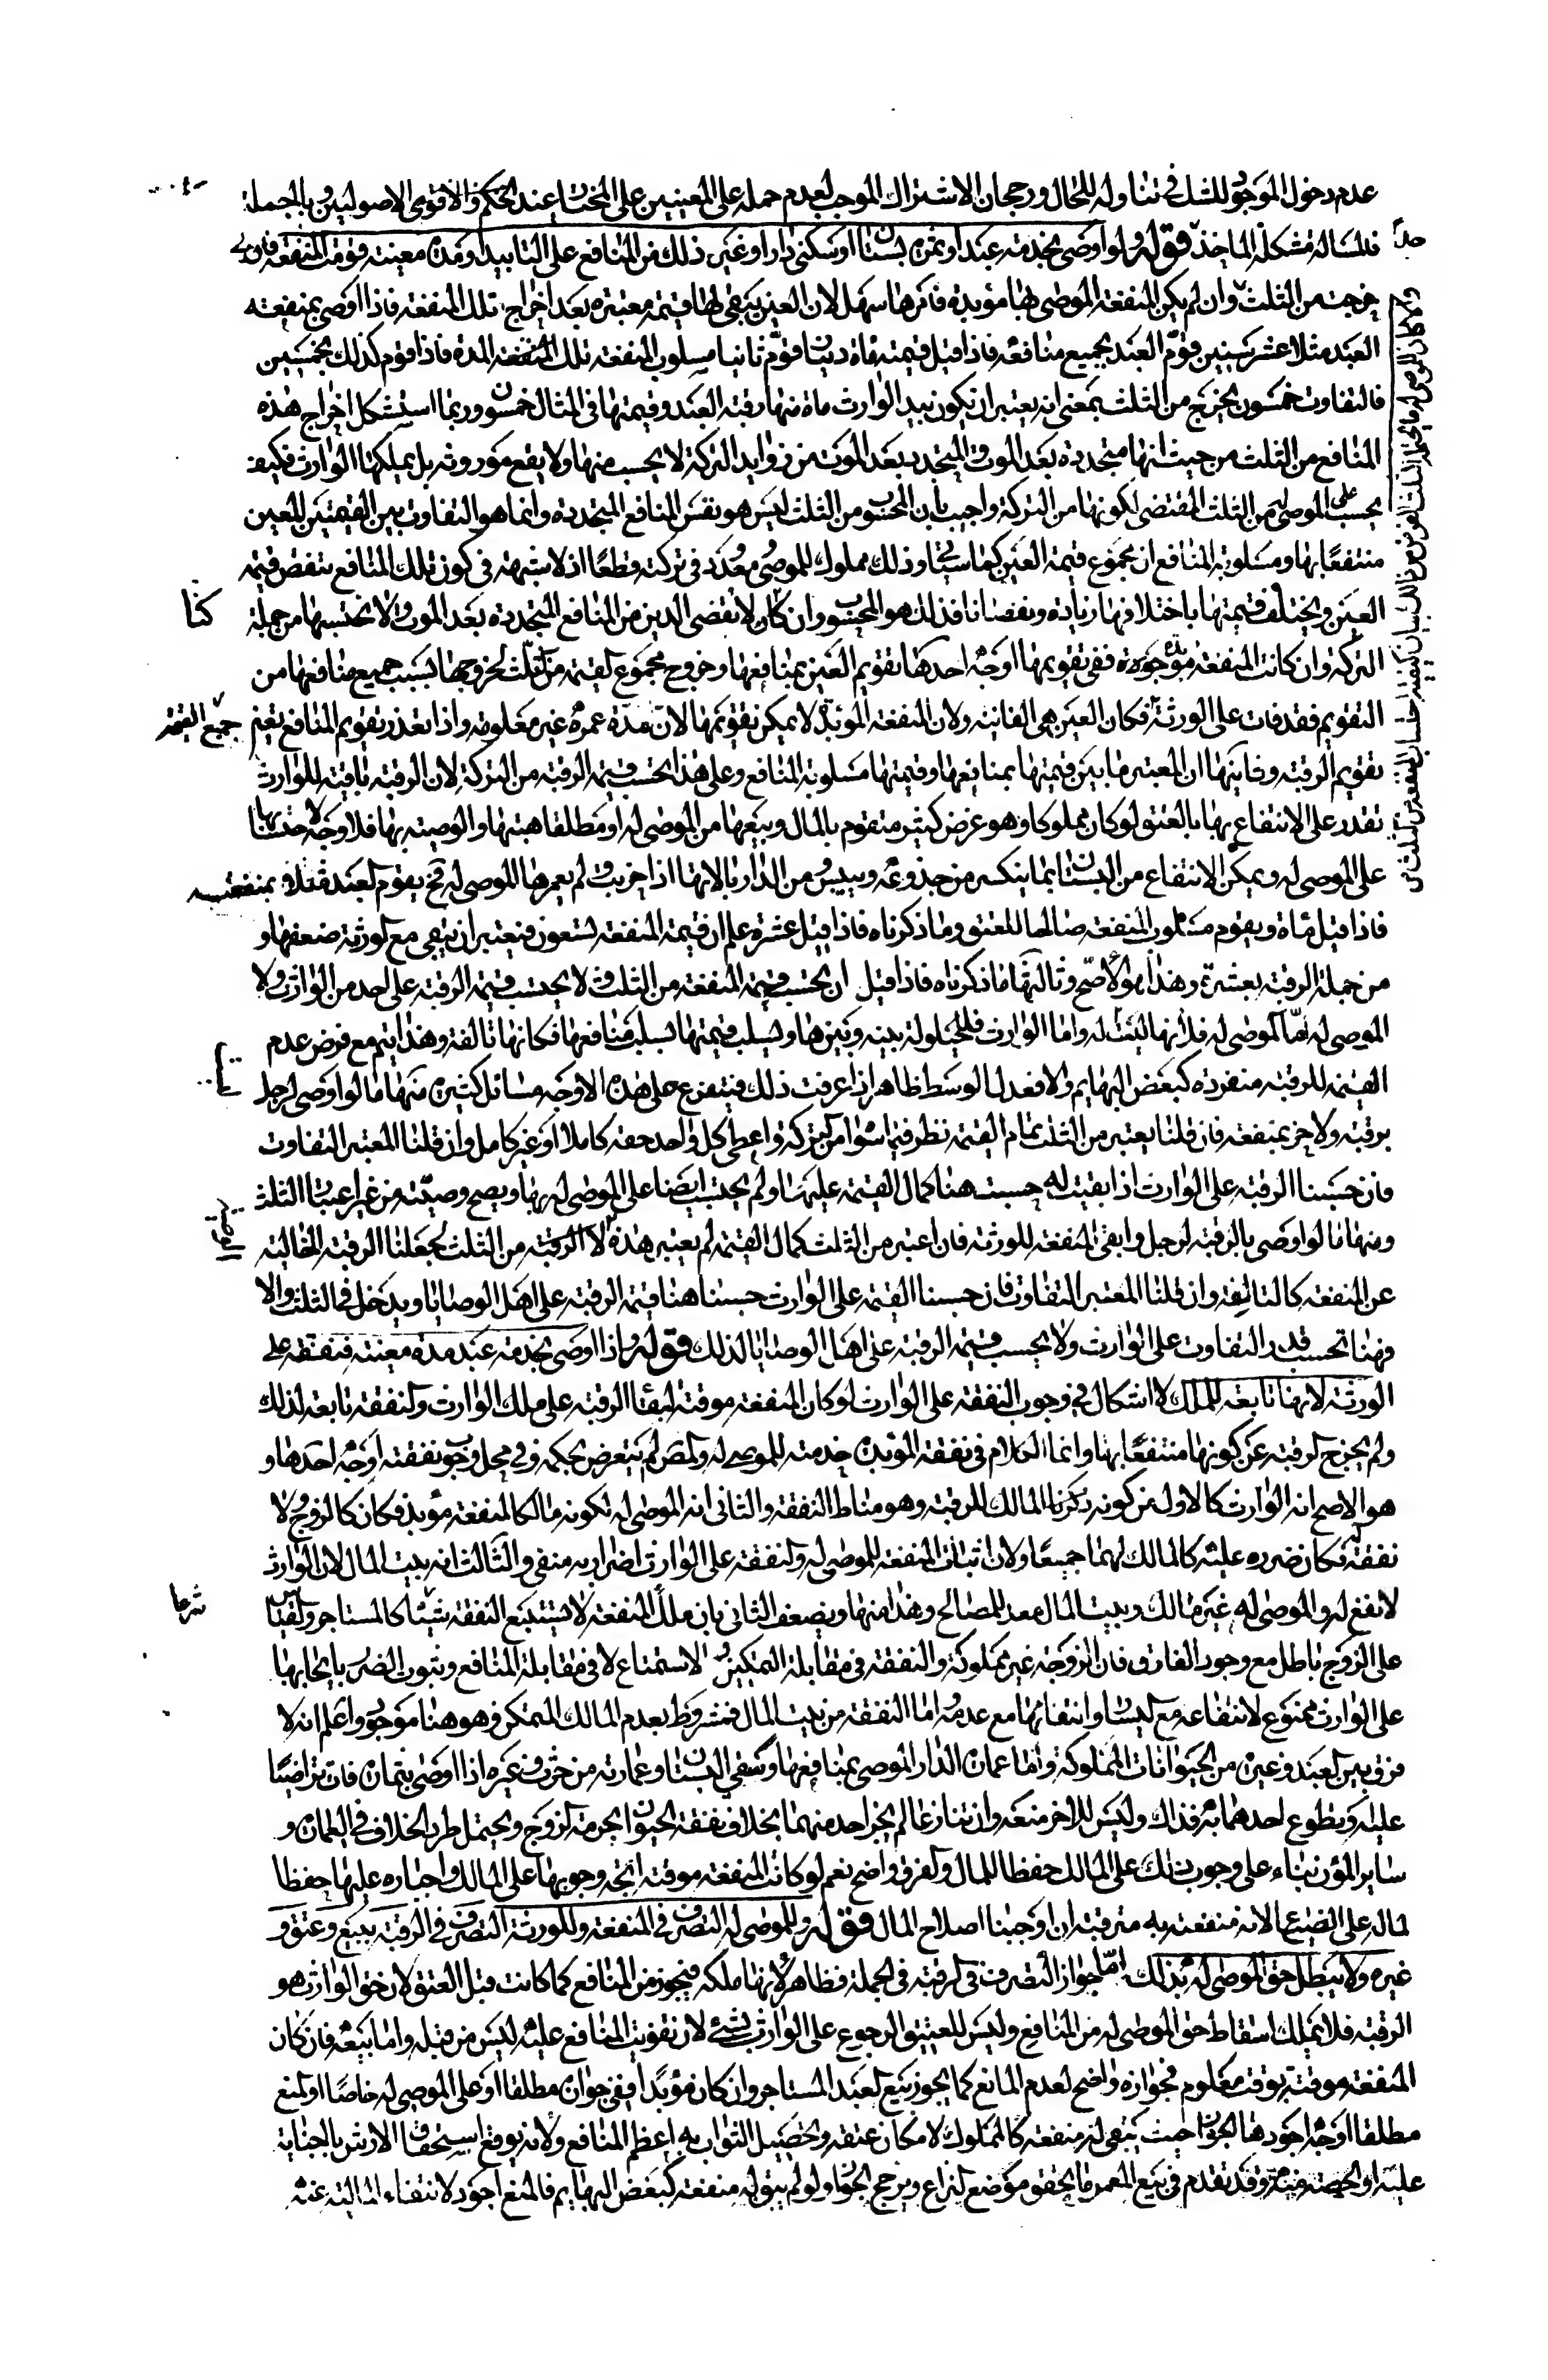 عدم دخول الموجود للشك في تناوله للحال ورجحان الاشتراك الموجب لعدم حمله على المعنيين على المختار عند الحكم والاقوى الاصوليين وبالجملة
فالمسالة مشكلة الماخذ قوله ولو اوصى بخدمة عبد او ثمرة بستان او سكنى دار او غير ذلك من المنافع على التابيد او مدة معينة قومت المنفعة فان
خرجت من الثلث وان لم يكن المنفعة الموصى بها مؤبدة فامرها سهل لان العين يبقى لها قيمة معتبرة بعد اخراج تلك المنفعة فاذا اوصى بمنفعة
العبد مثلا عشر سنين قوم العبد بجميع منافعه فاذا قيل قيمته مائة دينار قوم ثانيا مسلوب المنفعة تلك المدة فاذا قوم كذلك بخمسين
فالتفاوت خمسون يخرج من الثلث بمعنى انه يعتبر ان يكون بيد الوارث مائة منها رقبة العبد وقيمتها في المثال خمسون وربما استشكل اخراج هذه
المنافع من الثلث من حيث انها متجددة بعد الموت والمتجدد بعد الموت من زوايد التركة لا يحسب منها ولا يقع موروثه بل يملكها الوارث فكيف
يحسب على الموصى له من الثلث المقتضى لكونها من التركة واجيب بان المحسوب من الثلث ليس هو نفس المنافع المتجددة وانما هو التفاوت بين القيمتين للعين
منتفعا بها ومسلوبة المنافع ان مجموع قيمة العين كما سياتي وذلك مملوك للموصى ومعدود في تركته قطعا اذ لا شبهة في كون تلك المنافع تنقص قيمة
العين ويختلف قيمتها باختلافها زيادة ونقصانا فذلك هو المحسوب وان كان لا يقضى الدين من المنافع المتجددة بعد الموت ولا نحتسبها من جملة
التركة وان كانت المنفعة مؤبدة ففي تقويمها اوجه احدها تقويم العين بمنافعها وخروج مجموع القيمة من الثلث لخروجها بسبب جميع منافعها من
التقويم فقد فات على الورثة فكان العين هي الفانية ولان المنفعة المؤبدة لا يمكن تقويمها لان مدة عمره غير معلومة واذا تعذر تقويم المنافع تعين
تقويم الرقبة وثانيها ان المعتبر ما بين قيمتها بمنافعها وقيمتها مسلوبة المنافع وعلى هذا يحتسب قيمة الرقبة من التركة لان الرقبة باقية للوارث
تقدر على الانتفاع بها بالعتق لو كان مملوكا وهو غرض كبير متقوم بالمال وبيعها من الموصى له او مطلقا هبتها والوصية بها فلا وجه لاحتسابها
على الموصى له ويمكن الانتفاع من البستان بما ينكسر من جذوعه وييبس ومن الدار بالاتها اذا خربت ولم يعمرها الموصى له فح يقوم العبد مثلا بمنفعته
فاذا قيل مائة ويقوم مسلوب المنفعة صالحا للعتق وما ذكرناه فاذا قيل عشرة علم ان قيمة المنفعة تسعون فيعتبر ان يبقى مع الورثة ضعفها و
من جملة الرقبة بعشرة وهذا هو الاصح وثالثها ما ذكرناه فاذا قيل ان يحتسب قيمة المنفعة من الثلث ولا يحتسب قيمة الرقبة على احد من الوارث ولا
الموصى له اما الموصى له فلانها ليست له واما الوارث فللحيلولة بينه وبينها ولسلب قيمتها بسلب منافعها فكانها تالفة وهذا يتم مع فرض عدم
القيمة للرقبة منفردة كبعض البهايم والا فعدل الوسط ظاهر اذا عرفت ذلك فيتفرع على هذه الاوجه مسائل كثيرة منها ما لو اوصى لرجل
برقبة ولاخر بمنفعته فان قلنا يعتبر من الثلث تمام القيمة نظر فيما سواه من التركة واعطى كل واحد حقه كاملا او غير كامل وان قلنا المعتبر التفاوت
فان حسبنا الرقبة على الوارث اذا بقيت له حسبت هنا كمال القيمة عليهما ولم يحتسب ايضا على الموصى له بها ويصح وصيته من غير اعتبار الثلث
ومنها ما لو اوصى بالرقبة لرجل وابقى المنفعة للورثة فان اعتبر من الثلث كمال القيمة لم يعتبر هذه الرقبة من الثلث لجعلنا الرقبة الخالية
عن المنفعة كالتالفة وان قلنا المعتبر التفاوت فان حسبنا القيمة على الوارث حسبنا هنا قيمة الرقبة على اهل الوصايا ويدخل في الثلث والا
فهنا تحسب قدر التفاوت على الوارث ولا يحسب قيمة الرقبة على اهل الوصايا لذلك قوله واذا اوصى بخدمة عبد مدة معينة فنفقته على
الورثة لانها تابعة للملك لا اشكال في وجوب النفقة على الوارث لو كان المنفعة موقتة لبقاء الرقبة على ملك الوارث والنفقة تابعة لذلك
ولم يخرج الرقبة عن كونها منتفعا بها وانما الكلام في نفقة المؤبدة خدمته للموصى له والمص لم يتعرض لحكمه وفي محل وجوب نفقته اوجه احدها و
هو الاصح انه الوارث كالاول من كونه ذكرنا المالك للرقبة وهو مناط النفقة والثاني انه الموصى له لكونه مالكا لمنفعته مؤبد فكان كالزوج ولا
نفقته فكان ضرره عليه كالمالك لهما جميعا ولان اثبات المنفعة للموصى له والنفقة على الوارث اضرار به منفي والثالث انه بيت المال لان الوارث
لا نفع له والموصى له غير مالك وبيت المال معد للمصالح وهذا منها ويضعف الثاني بان ملك المنفعة لا يستتبع النفقة شرعا كالمستاجر والقياس
على الزوج باطل مع وجود الفارق فان الزوجة غير مملوكة والنفقة في مقابلة التمكين من الاستمتاع لا في مقابلة المنافع وثبوت الضرر بايجابها
على الوارث ممنوع لانتفاعه مع اليسار وانتفائها مع عدمه اما النفقة من بيت المال فمشروط بعدم المالك المتمكن وهو هنا موجود واعلم انه لا
فرق بين العبد وغيره من الحيوانات المملوكة واما عمارة الدار الموصى بمنافعها وسقي البستان وعمارته من حرث وغيره اذا اوصى بثمارة فان تراضيا
عليه او تطوع احدهما به فذاك وليس للاخر منعه وان تنازعا لم يجبر احد منهما بخلاف نفقة الحيوان لحرمة الروح ويحتمل طرد الخلاف في العمارة و
ساير المؤن بناء على وجوب ذلك على المالك حفظا للمال والفرق واضح نعم لو كانت المنفعة موقتة اتجه وجوبها على المالك واجباره عليها حفظا
لماله على الضياع لانه منفعته به مترقبة ان اوجبنا اصلاح المال قوله وللموصى له التصرف في المنفعة وللورثة التصرف في الرقبة ببيع وعتق و
غيره ولا يبطل حق الموصى له بذلك اما جواز التصرف في الرقبة في الجملة فظاهر لانها ملكه فيجوز من المنافع كما كانت قبل العتق لان حق الوارث هو
الرقبة فلا يملك اسقاط حق الموصى له من المنافع وليس للعتيق الرجوع على الوارث بشيء لان تفويت المنافع عليه ليس من قبله واما بيعه فان كان
المنفعة موقتة بوقت معلوم فجوازه واضح لعدم المانع كما يجوز بيع العبد المستاجر وان كان مؤبدا ففي جوازه مطلقا او على الموصى له خاصا او المنع
مطلقا اوجه اجودها الجواز حيث يبقى له منفعة كالمملوك لامكان عتقه وتحصيل الثواب به اعظم المنافع ولانه يوقع استحقاق الارش بالجناية
عليه او الحصة منه وقد تقدم في بيع المعمر ما يحقق موضع النزاع ويرجح الجواز ولو لم يبق له منفعة كبعض البهايم فالمنع اجود لانتفاء المالية عنه
جميع القيمة
شرعا